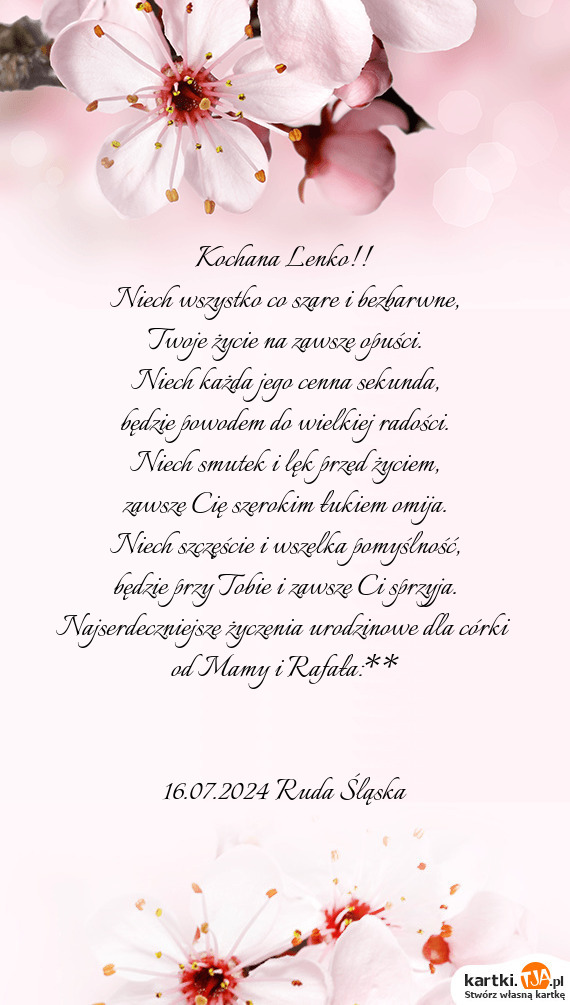 Kochana Lenko!!
Niech wszystko co szare i bezbarwne,
Twoje życie na zawsze opuści.
Niech każda jego cenna sekunda,
będzie powodem do wielkiej radości.
Niech smutek i lęk przed życiem,
zawsze Cię szerokim łukiem omija.
Niech szczęście i wszelka pomyślność,
będzie przy Tobie i zawsze Ci sprzyja.
Najserdeczniejsze życzenia urodzinowe dla córki
od Mamy i Rafała:**
16.07.2024 Ruda Śląska
kartki.TJA.pl
Stwórz własną kartkę